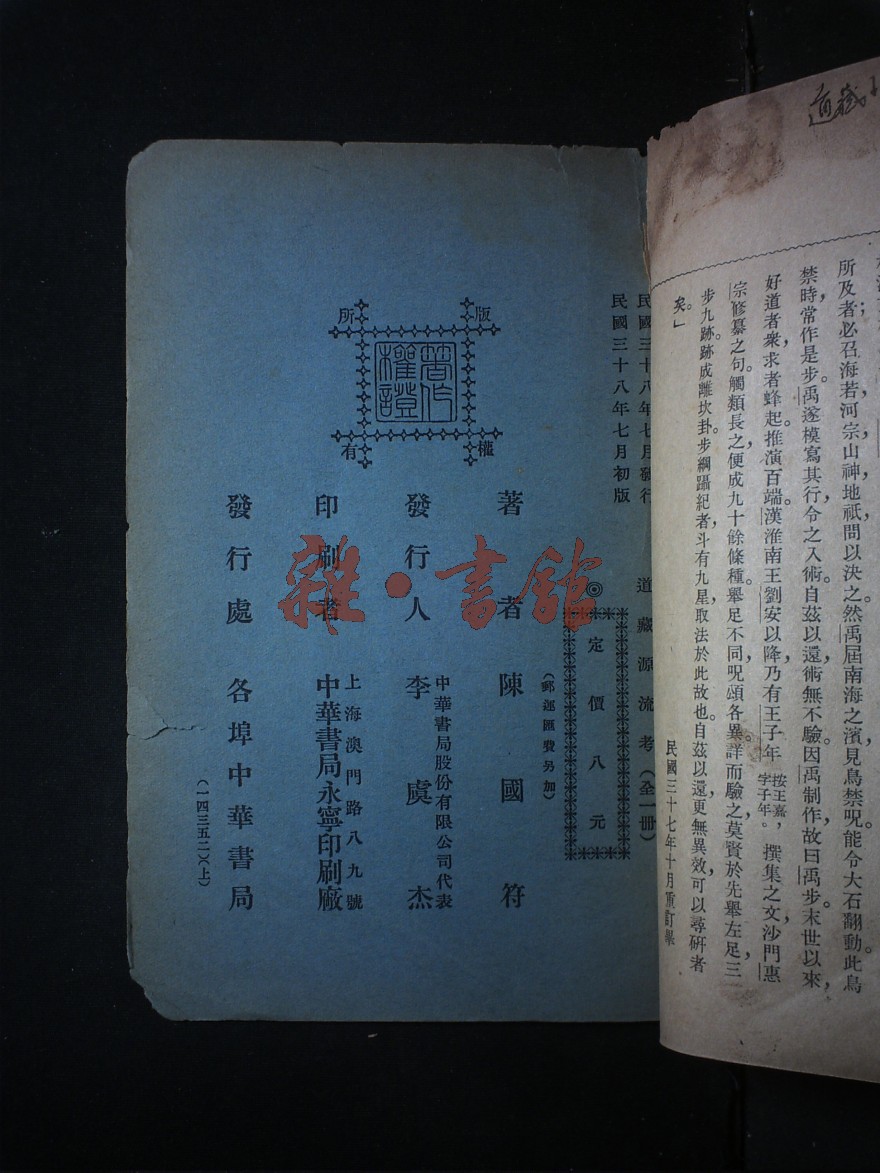 道藏
所及者，必召海若河宗山神地祇問以決之。然禹屆南海之濱，見鳥禁呪，能令大石翻動。此鳥
禁時，常作是步。禹遂模寫其行，令之入術。自茲以還，術無不驗。因禹制作，故曰禹步。末世以來，
好道者衆，求者蜂起，推演百端。漢淮南王劉安以降，乃有王子年 按王嘉，字子年。，撰集之文，沙門惠
宗修纂之句。觸類長之，便成九十餘條種。舉足不同，呪頌各異。詳而驗之，莫賢於先舉左足，三
步九跡，跡成離坎卦。步綱躡紀者，斗有九星，取法於此故也。自茲以還，更無異效，可以尋研者
矣。」
民國三十七年十月重訂畢
民國三十八年七月發行
民國三十八年七月初版
道藏源流考（全一冊）
◎定價八元
（郵運匯費另加）
著者 陳國符
發行人 李虞杰
中華書局股份有限公司代表
印刷者 中華書局永寧印刷廠
上海澳門路八九號
發行處 各埠中華書局
（一四三五二）（上）
版權所有
著作權證
雜·書館